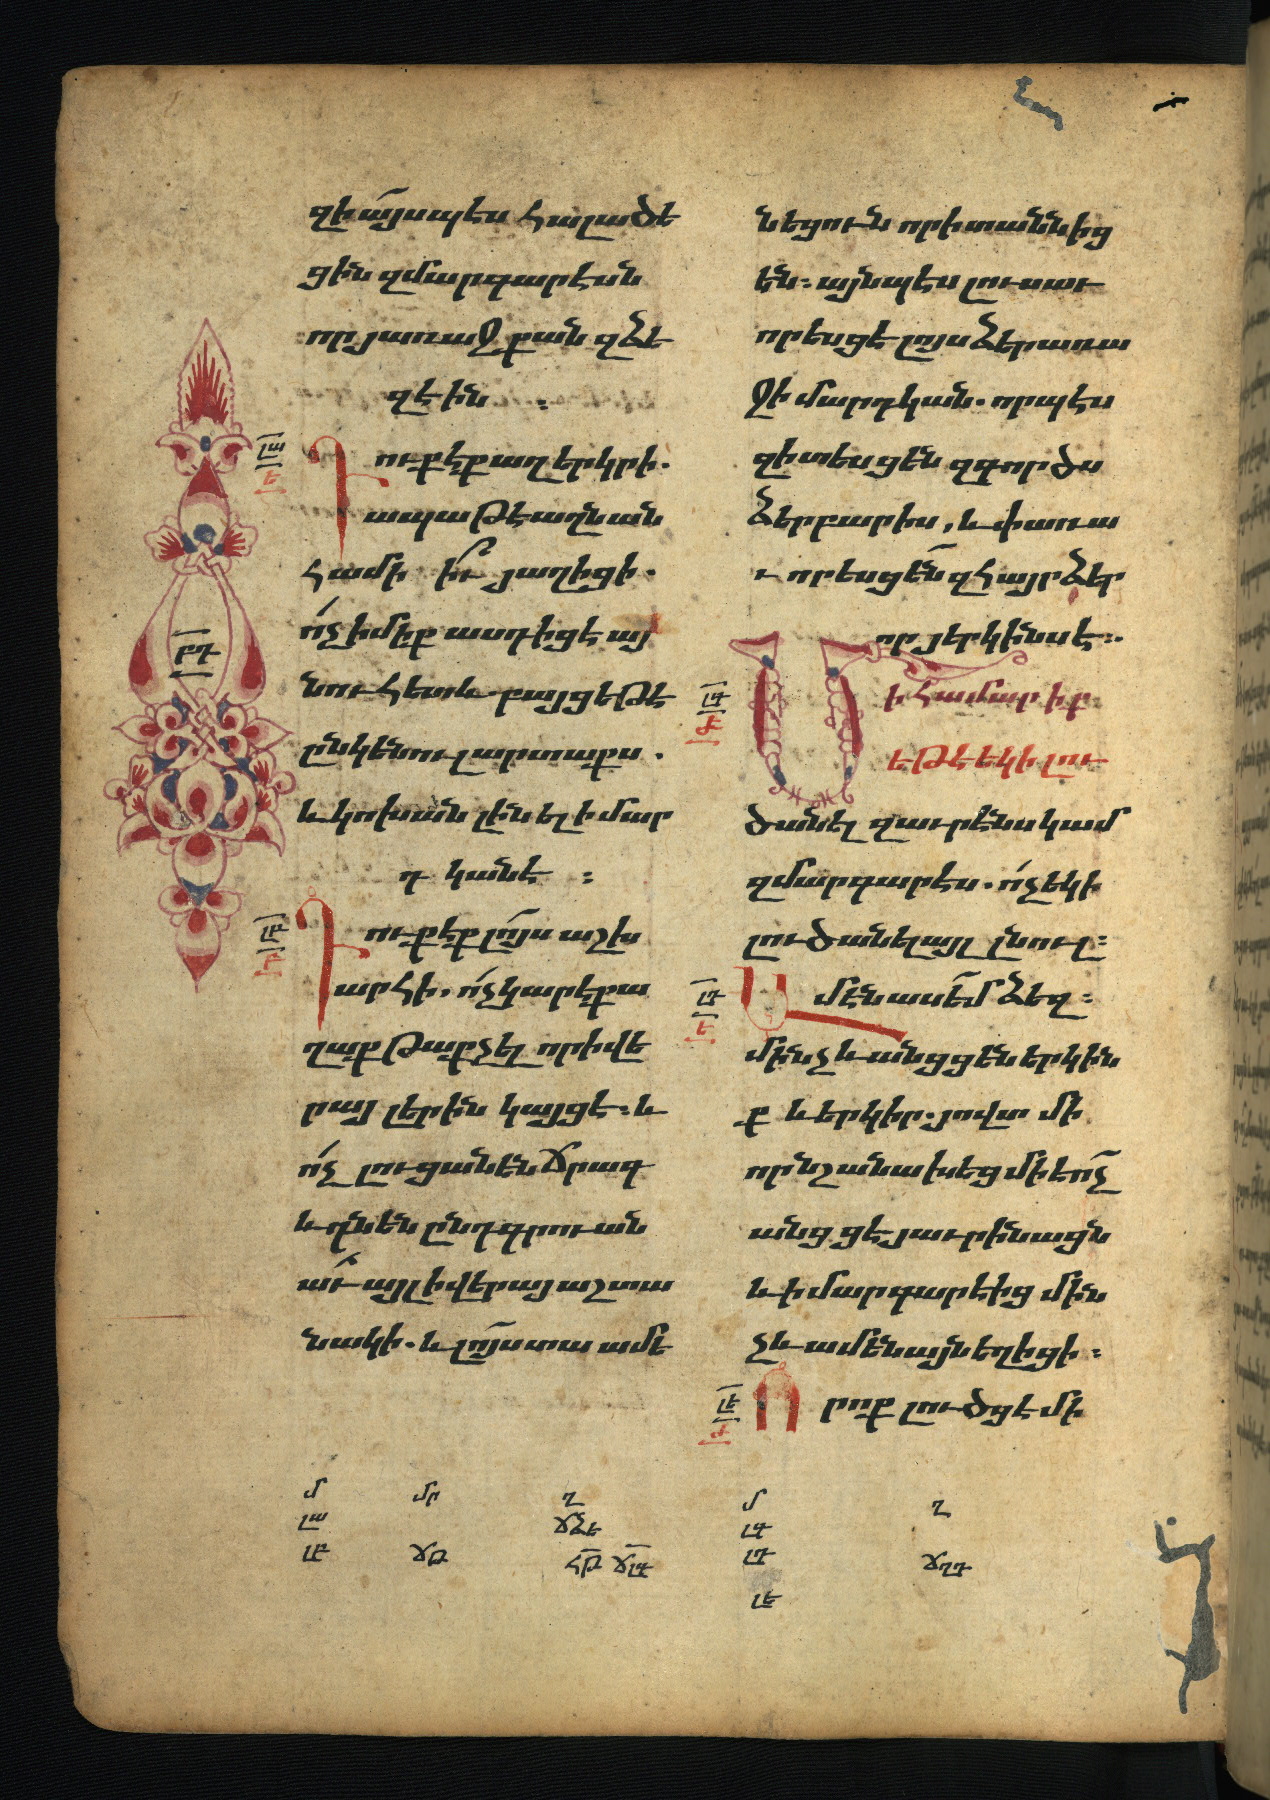 զի այսպէս հալածե
ցին զմարգարէսն
որ յառաջ քան զձե
զէին :
լա
ե
Դուք էք աղ երկրի.
ապա թէ աղն ան
համի իւ յաղիցի.
ո՛չ իմիք ազդիցէ այ
նուհետև բայց եթէ
ընկենուլ արտաքս .
և կոխան լինել ի մար
դկանէ :
բդ
լբ
բ
Դուք էք լոյս աշխ
արհի. ո՛չ կարէ քա
ղաք թաքչել որ ի վե
րայ լերին կայցէ: և
ո՛չ լուցանեն ճրագ
և դնեն ընդ գրուան
աւ այլ ի վերայ աշտա
նակի. և լոյս տա ամե
նեցուն որ ի տանն ից
են: այնպէս լուսաւ
որեսցէ լոյս ձեր առա
ջի մարդկան. որպէս
զի տեսցեն զգործս
ձեր բարիս, և փառա
ւորեսցեն զհայր ձեր
որ յերկինս է:.
լգ
ժ
Մի համարիք
եթէ եկի լու
ծանել զաւրէնս կամ
զմարգարէս. ո՛չ եկի
լուծանել այլ լնուլ:
լդ
ե
Ամէն ասեմ ձեզ:
մինչև անցցեն երկին
ք և երկիր. յովտ մի
որ նշանախեց մի է ո՛չ
անցցէ յաւրինացն
և ի մարգարէից մին
չև ամենայն եղիցի :
լե
ժ
Որ ոք լուծցէ մի
մ մր ղ
լա ճձե
լբ ճթ հթ ճլգ
մ ղ
լգ
լդ ճղդ
լե